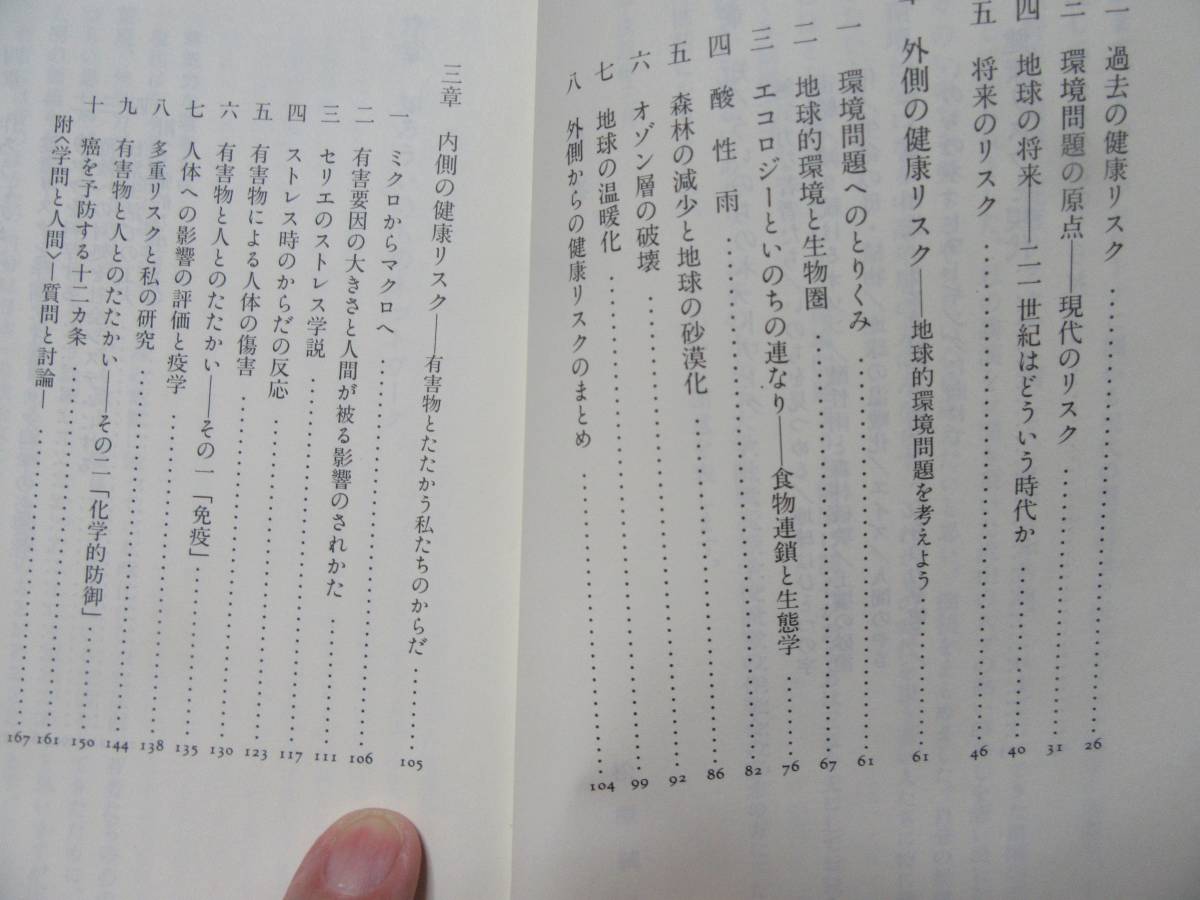 過去の健康リスク……26
三 環境問題の原点——現代のリスク……31
四 地球の将来——二一世紀はどういう時代か……40
五 将来のリスク……46
外側の健康リスク——地球的環境問題を考えよう……61
一 環境問題へのとりくみ……61
二 地球的環境と生物圏……67
三 エコロジーといのちの連なり——食物連鎖と生態学……76
四 酸性雨……82
五 森林の減少と地球の砂漠化……86
六 オゾン層の破壊……92
七 地球の温暖化……99
八 外側からの健康リスクのまとめ……104
三章 内側の健康リスク——有害物とたたかう私たちのからだ……105
一 ミクロからマクロへ……106
二 有害要因の大きさと人間が被る影響のされかた……111
三 セリエのストレス学説……117
四 ストレス時のからだの反応……123
五 有害物による人体の傷害……130
六 有害物と人とのたたかい——その一「免疫」……135
七 人体への影響の評価と疫学……138
八 多重リスクと私の研究……144
九 有害物と人とのたたかい——その二「化学的防御」……150
十 癌を予防する十二カ条……161
附〈学問と人間〉—質問と討論—……167